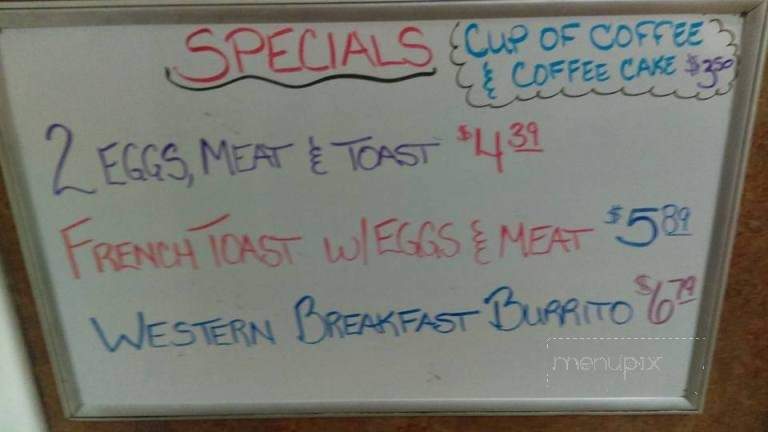 SPECIALS
CUP OF COFFEE
& COFFEE CAKE $3.50
2 EGGS, MEAT & TOAST $4.39
FRENCH TOAST W/EGGS & MEAT $5.89
WESTERN BREAKFAST BURRITO $6.79
menupix